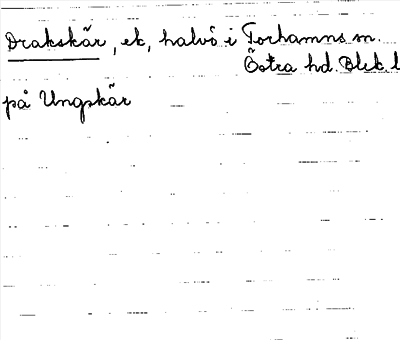 Drakskär, ek, halvö i Torhamns sn.
Östra hd. Blek. l
på Ungskär